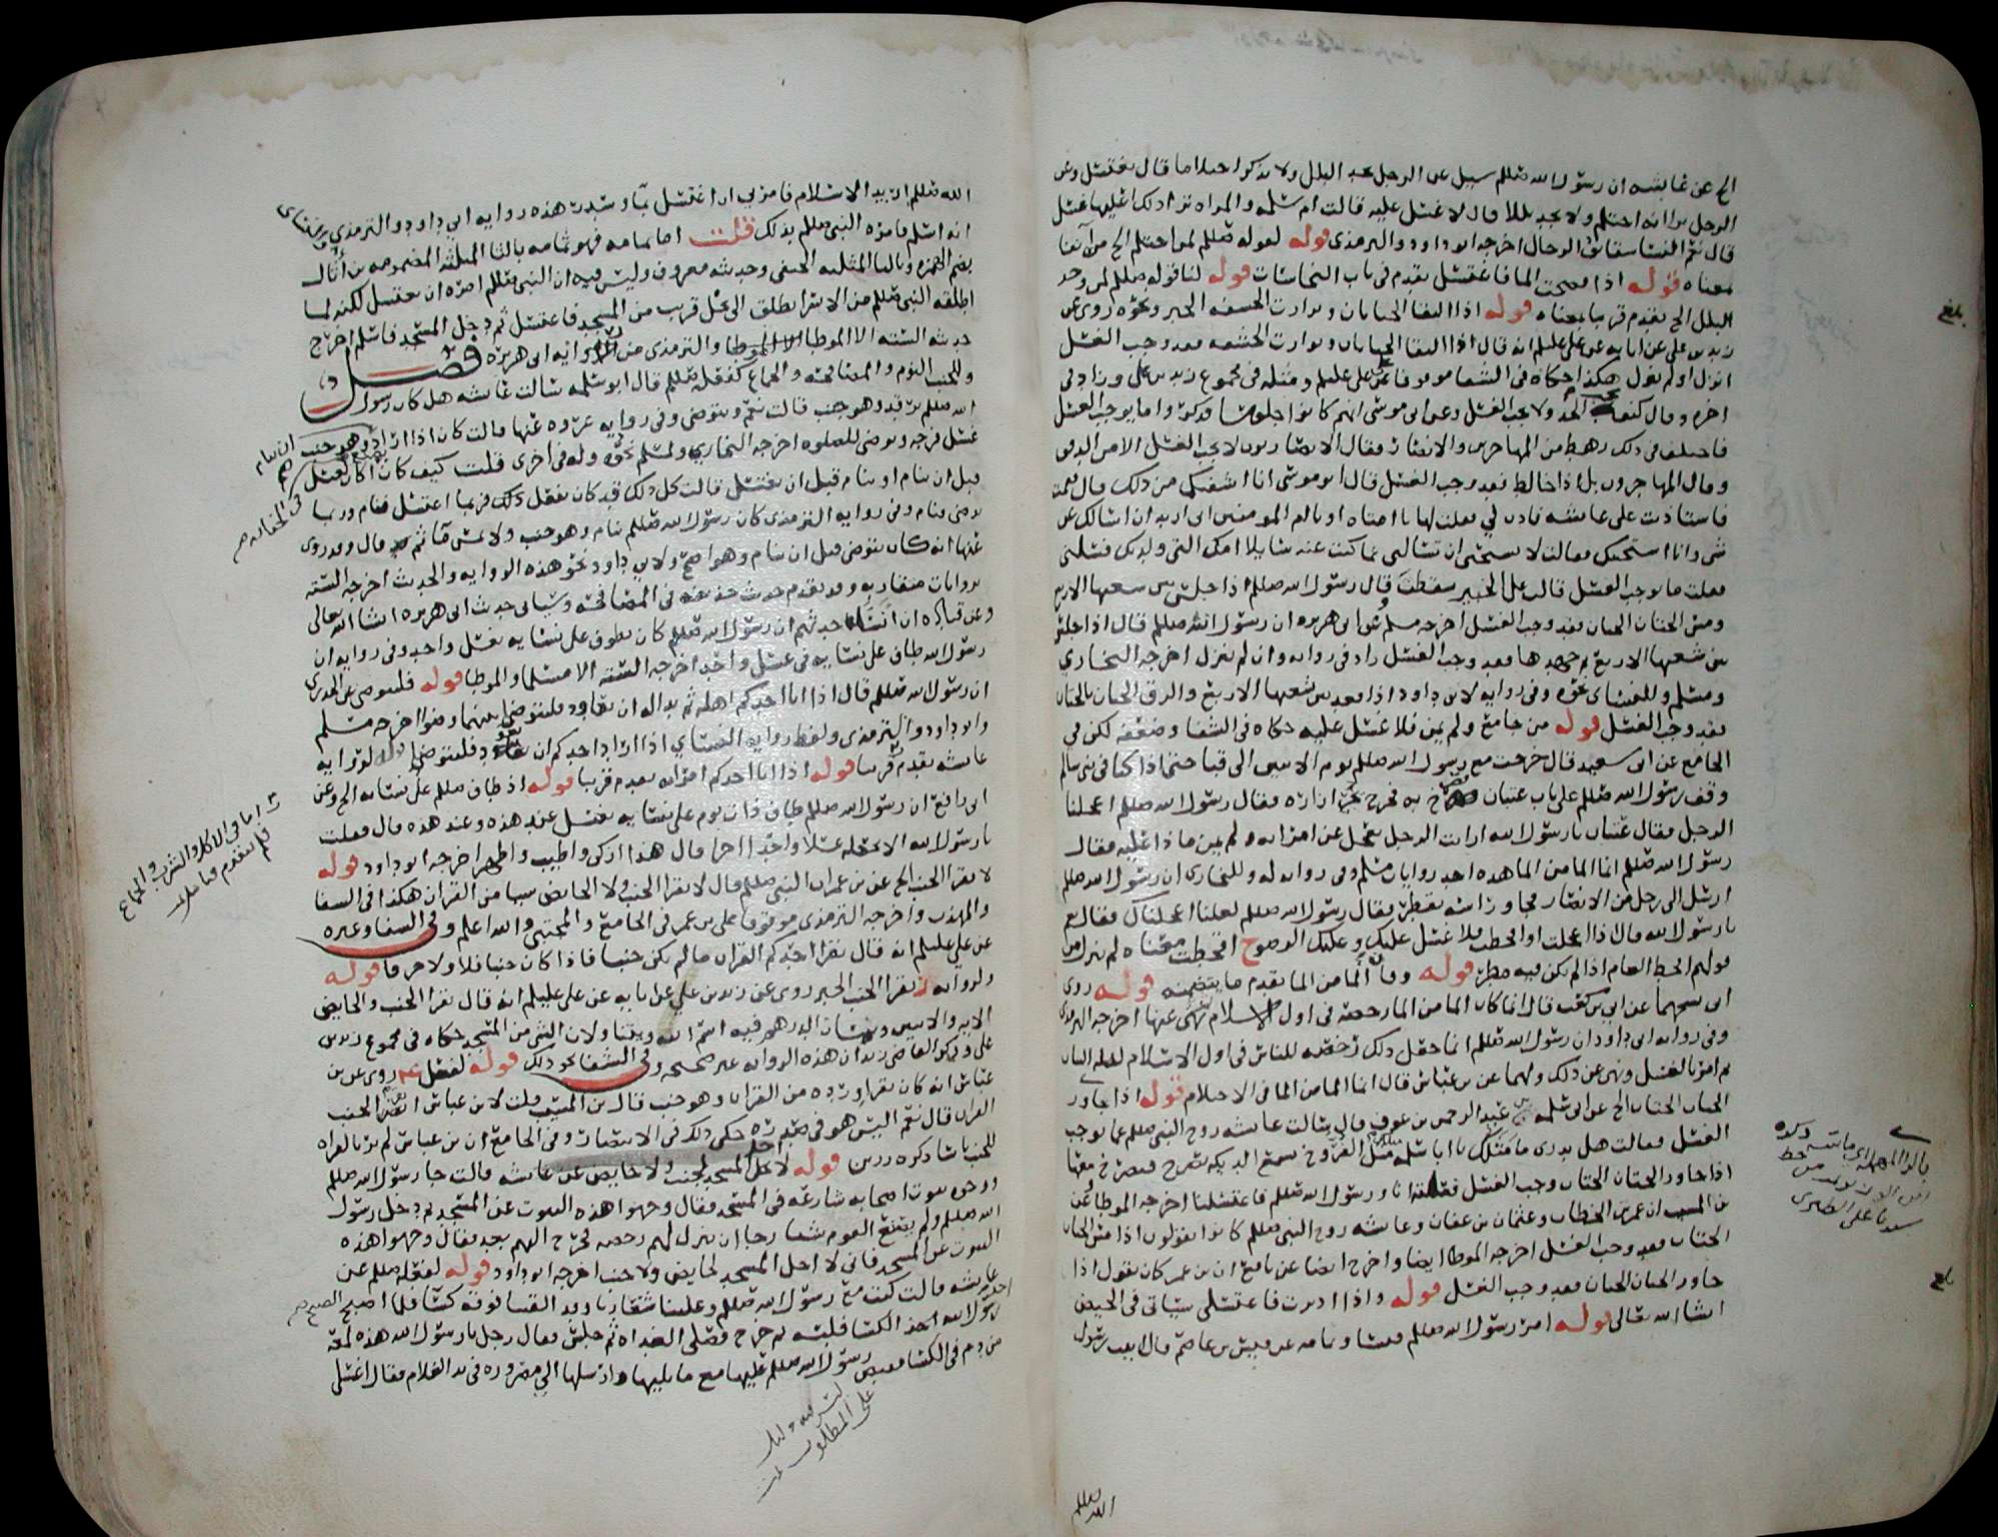 الخ عن عايشه ان رسول الله صللم سيل عن الرجل يجد البلل ولا يذكر احتلاما قال يغتسل وعن
الرجل يرا انه احتلم ولا يجد بللا قال لا غسل عليه قالت ام سلمه والمراه ترا ذلك اعليها غسل
قال نعم النسا شقايق الرجال اخرجه ابو داود والترمذي قوله لقوله صللم لمن احتلم الخ
معناه قوله اذا فضحت الما فاغتسل تقدم في باب النجاسات قوله لنا قوله صللم لمن وجد
البلل الخ تقدم قريبا بمعناه قوله اذا التقا الختانان وتوارت الحشفه الخبر ونحوه روى عن
زيد بن علي عن ابايه عن علي عليلم انه قال اذا التقا الختانان وتوارت الحشفه فقد وجب الغسل
انزل او لم ينزل هكذا حكاه في الشفا موقوفا على علي عليلم ومثله في مجموع زيد بن علي وزاد في
اخره وقال كيف يجب الحد ولا يجب الغسل وعن ابي موسى انهم كانوا جلوسا فذكروا ما يوجب الغسل
فاختلف في ذلك رهط من المهاجرين والانصار فقال الانصاريون لا يجب الغسل الا من الدفق
وقال المهاجرون بل اذا خالط فقد وجب الغسل قال ابو موسى انا اشفيكم من ذلك قال فقمت
فاستاذنت على عايشه فاذن لي فقلت لها يا اماه او يا ام المومنين اني اريد ان اسالك عن
شي وانا استحيك فقالت لا تستحي ان تسالني عما كنت عنه سايلا امك التي ولدتك فسلني
فقلت ما يوجب الغسل قالت على الخبير سقطت قال رسول الله صللم اذا جلس بين شعبها الاربع
ومس الختان الختان فقد وجب الغسل اخرجه مسلم وعن ابي هريره ان رسول الله صللم قال اذا جلس
بين شعبها الاربع ثم جهدها فقد وجب الغسل زاد في روايه وان لم ينزل اخرجه البخاري
ومسلم وللنساي نحوه وفي روايه لابي داود اذا قعد بين شعبها الاربع والزق الختان بالختان
فقد وجب الغسل قوله من جامع ولم يمن فلا غسل عليه حكاه في الشفا وضعفه لكن في
الجامع عن ابي سعيد قال خرجت مع رسول الله صللم يوم الاثنين الى قبا حتى اذا كنا في بني سالم
وقف رسول الله صللم على باب عتبان فصرخ به فخرج يجر ازاره فقال رسول الله صللم اعجلنا
الرجل فقال عتبان يا رسول الله ارايت الرجل يعجل عن امراته ولم يمن ماذا عليه فقال
رسول الله صللم انما الما من الما هذه احد روايات مسلم وفي روايه له وللبخاري ان رسول الله صللم
ارسل الى رجل من الانصار فجا وراسه يقطر فقال رسول الله صللم لعلنا اعجلناك فقال نعم
يا رسول الله قال اذا اعجلت او اقحطت فلا غسل عليك وعليك الوضو اقحطت معناه لم تنزل من
قولهم اقحط العام اذا لم يكن فيه مطر قوله وقال انما الما من الما تقدم ما يتضمنه قوله روى
عن ابي بن كعب قال انما كان الما من الما رخصه في اول الاسلام ثم نهى عنها اخرجه الترمذي
وفي روايه ابي داود ان رسول الله صللم انما جعل ذلك رخصه للناس في اول الاسلام لقله الثياب
ثم امر بالغسل ونهى عن ذلك ولهما عن بن عباس قال انما الما من الما في الاحتلام قوله اذا جاوز
الختان الختان الخ عن ابي سلمه بن عبد الرحمن بن عوف قال سالت عايشه زوج النبي صللم عما يوجب
الغسل فقالت هل تدري ما مثلك يا ابا سلمه مثل الفروج يسمع الديكه تصرخ فيصرخ معها
اذا جاوز الختان الختان وجب الغسل فعلته انا ورسول الله صللم فاغتسلنا اخرجه الموطا وعن
بن المسيب ان عمر بن الخطاب وعثمان بن عفان وعايشه زوج النبي صللم كانوا يقولون اذا مس الختان
الختان فقد وجب الغسل اخرجه الموطا ايضا واخرج ايضا عن نافع ان بن عمر كان يقول اذا
جاوز الختان الختان فقد وجب الغسل قوله واذا ادبرت فاغتسلي سياتي في الحيض
انشا الله تعالى قوله امر رسول الله صللم قيسا وثمامه عن قيس بن عاصم قال اتيت رسول
الله صللم
بلغ
بلغ
الله صللم اريد الاسلام فامرني ان اغتسل بما وسدر هذه روايه ابي داود والترمذي وفي روايه النساي
انه اسلم فامره النبي صللم بذلك قلت اما ثمامه فهو ثمامه بالثا المثلثه المضمومه بن أثال
بضم الهمزه وبالثا المثلثه الحنفي وحديثه معروف وليس فيه ان النبي صللم امره ان يغتسل لكنه لما
اطلقه النبي صللم من الاسر انطلق الى نخل قريب من المسجد فاغتسل ثم دخل المسجد فاسلم اخرج
حديثه السته الا الموطا والترمذي من روايه ابي هريره فصل
وللجنب النوم والمصافحه والجماع كفعله صللم قال ابو سلمه سالت عايشه هل كان رسول
الله صللم يرقد وهو جنب قالت نعم ويتوضى وفي روايه عروه عنها قالت كان اذا اراد ان ينام وهو جنب
غسل فرجه وتوضى للصلوه اخرجه البخاري ولمسلم نحوه وله في اخرى قلت كيف كان يصنع في الجنابه اكان يغتسل
قبل ان ينام او ينام قبل ان يغتسل قالت كل ذلك قد كان يفعل ذلك فربما اغتسل فنام وربما
توضى فنام وفي روايه الترمذي كان رسول الله صللم ينام وهو جنب ولا يمس ما ثم قال وقد روي
عنها انه كان يتوضى قبل ان ينام وهو اصح ولابي داود نحو هذه الروايه والحديث اخرجه السته
بروايات متقاربه وقد تقدم حديث حذيفه في المصافحه وسياتي حديث ابي هريره انشا الله تعالى
وعن قتاده ان انسا حدثهم ان رسول الله صللم كان يطوف على نسايه بغسل واحد وفي روايه ان
رسول الله طاف على نسايه في غسل واحد اخرجه السته الا مسلما والموطا قوله فليتوضى عن الخدري
ان رسول الله صللم قال اذا اتا احدكم اهله ثم بدا له ان يعاود فليتوضى بينهما وضوا اخرجه مسلم
وابو داود والترمذي ولفظ روايه النساي اذا اراد احدكم ان يعود فليتوضى قوله لروايه
عايشه تقدم قريبا قوله اذا اتا احدكم امراته تقدم قريبا قوله اذ طاف صللم على نسايه الخ وعن
ابي رافع ان رسول الله صللم طاف ذات يوم على نسايه يغتسل عند هذه وعند هذه قال فقلت
يا رسول الله الا تجعله غسلا واحدا اخرا قال هذا ازكى واطيب واطهر اخرجه ابو داود قوله
لا يقرا الجنب الخ عن بن عمر ان النبي صللم قال لا يقرا الجنب ولا الحايض شيا من القران هكذا في الشفا
والمهذب واخرجه الترمذي موقوفا على بن عمر في الجامع والمجتبى والله اعلم وفي الشفا وغيره
عن علي عليلم انه قال يقرا احدكم القران ما لم يكن جنبا فاذا كان جنبا فلا ولا حرفا قوله
ولروايه يقرا الجنب الخبر روى عن زيد بن علي عن ابايه عن علي عليلم انه قال يقرا الجنب والحايض
الايه والايتين ويمسان الدرهم فيه اسم الله ويتناولان الشي من المسجد حكاه في مجموع زيد بن
علي وذكر القاضي زيد ان هذه الروايه غير صحيحه وفي الشفا نحو ذلك قوله لفعل ع روى عن بن
عباس انه كان يقرا ورده من القران وهو جنب قال بن المسيب قلت لابن عباس ايقرا الجنب
القران قال نعم اليس هو في صدره حكى ذلك في الانتصار وفي الجامع ان بن عباس لم ير بالقراه
للجنب باسا ذكره رزين قوله لا احل المسجد لجنب ولا حايض عن عايشه قالت جا رسول الله صللم
ووجوه بيوت اصحابه شارعه في المسجد فقال وجهوا هذه البيوت عن المسجد ثم دخل رسول
الله صللم ولم يصنع القوم شيا رجا ان ينزل لهم رخصه فخرج اليهم بعد فقال وجهوا هذه
البيوت عن المسجد فاني لا احل المسجد لحايض ولا جنب اخرجه ابو داود قوله لفعله صللم عن
عايشه قالت كنت مع رسول الله صللم وعلينا شعارنا وقد القينا فوقه كسا فلما اصبح
رسول الله اخذ الكسا فلبسه ثم خرج فصلى الغداه ثم جلس فقال رجل يا رسول الله هذه لمعه
من دم في الكسا فقبض رسول الله صللم عليها مع ما يليها وارسلها الي مصروره في يد الغلام فقال اغسلي